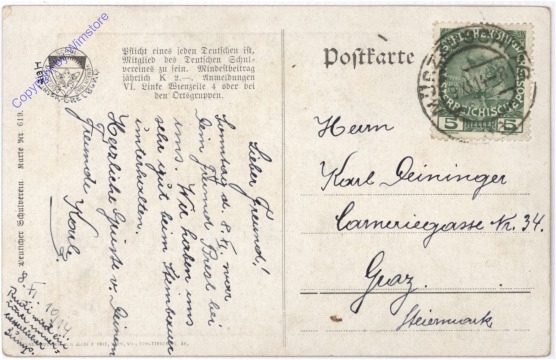 Pflicht eines jeden Deutschen ist,
Mitglied des Deutschen Schul-
vereines zu sein. Mindestbeitrag
jährlich K 2.—. Anmeldungen
VI. Linke Wienzeile 4 oder bei
den Ortsgruppen.
Postkarte
5 5
Herrn
Karl Deininger
Carneriegasse Nr. 34.
Graz.
Steiermark
Lieber Freund!
Sonntag d. 8. XI. war
Dein Freund bei
uns. Wir haben uns
sehr gut beim Steinbauer
unterhalten.
Herzliche Grüsse v. Deinem
Freunde Karl
8. XI. 1914
Deutscher Schulverein Karte Nr 619.
Copyright by Wimstore